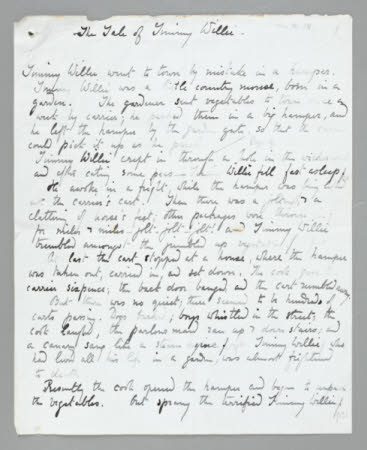 The Tale of Timmy Willie.
Timmy Willie went to town by mistake in a hamper.
Timmy Willie was a little country mouse, born in a
garden. The gardener sent vegetables to town once a
week by carrier; he packed them in a big hamper, and
he left the hamper by the garden gate, so that the
could pick it up as he
Timmy Willie crept in through a hole in the wicker
and after eating some peas Willie fell fast asleep!
He awoke in a fright, while the hamper was
the carrier's cart. Then there was a jolting, & a
clattering of horse's feet; other packages were thrown
for miles & miles jolt, jolt, jolt! and Timmy Willie
trembled amongst the jumbled up
At last the cart stopped at a house, where the hamper
was taken out, carried in, and set down. The cook gave
carrier sixpence; the back door banged, and the cart rumbled away.
But there was no quiet; there seemed to be hundreds of
carts passing. Dogs barked; boys whistled in the street; the
cook laughed, the parlour maid ran up & down stairs; and
a canary sang like a steam engine. Timmy Willie, who
had lived all his life in a garden, was almost frightened
to death
Presently the cook opened the hamper and began to unpack
the vegetables. Out sprang the terrified Timmy Willie!